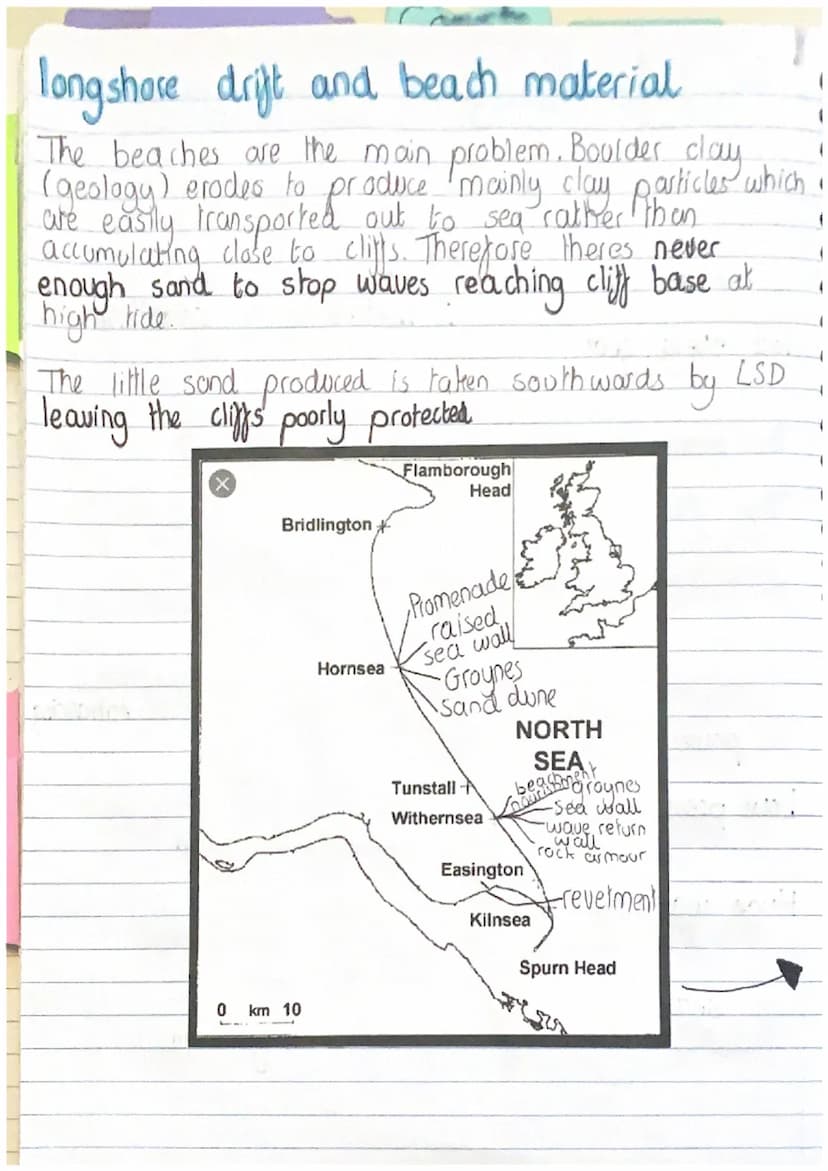 longshore drift and beach material
The beaches are the main problem. Boulder clay
(geology) erodes to produce mainly clay particles which
are easily transported out to sea rather than
accumulating close to cliffs. Therefore theres never
enough sand to stop waves reaching cliff base at
high tide.
The little sand produced is taken southwards by LSD
leaving the cliffs poorly protected
Flamborough
Head
Bridlington
Promenade
raised
sea wall
Hornsea
Groynes
sand dune
NORTH
SEA
beachment
nourishment
groynes
Tunstall
sea wall
Withernsea
wave return
wall
rock armour
Easington
revetment
Kilnsea
Spurn Head
0 km 10